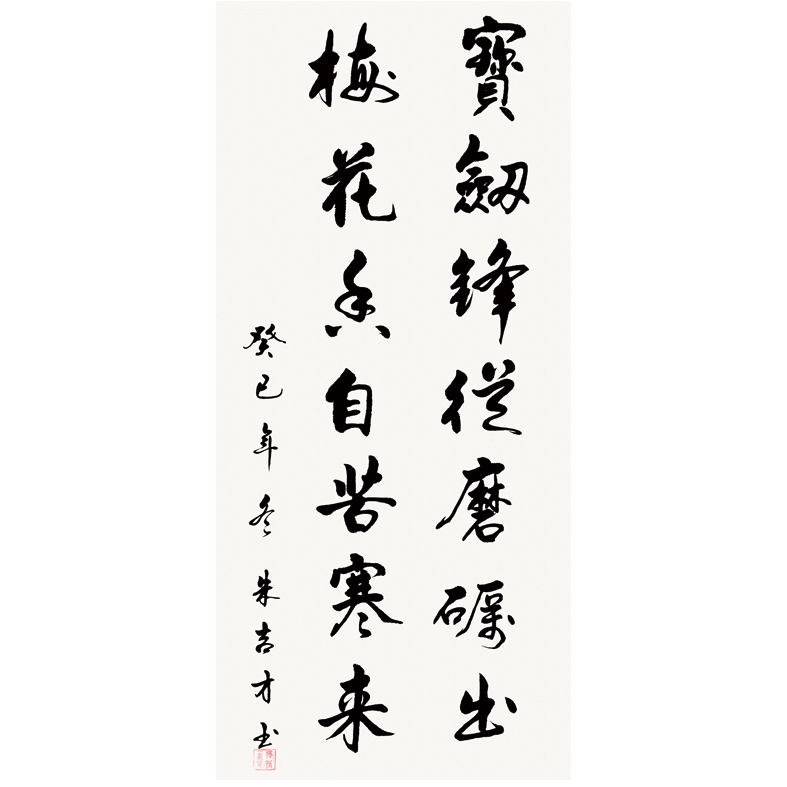 寶劒鋒從磨礪出
梅花香自苦寒来
癸巳年冬 朱吉才书